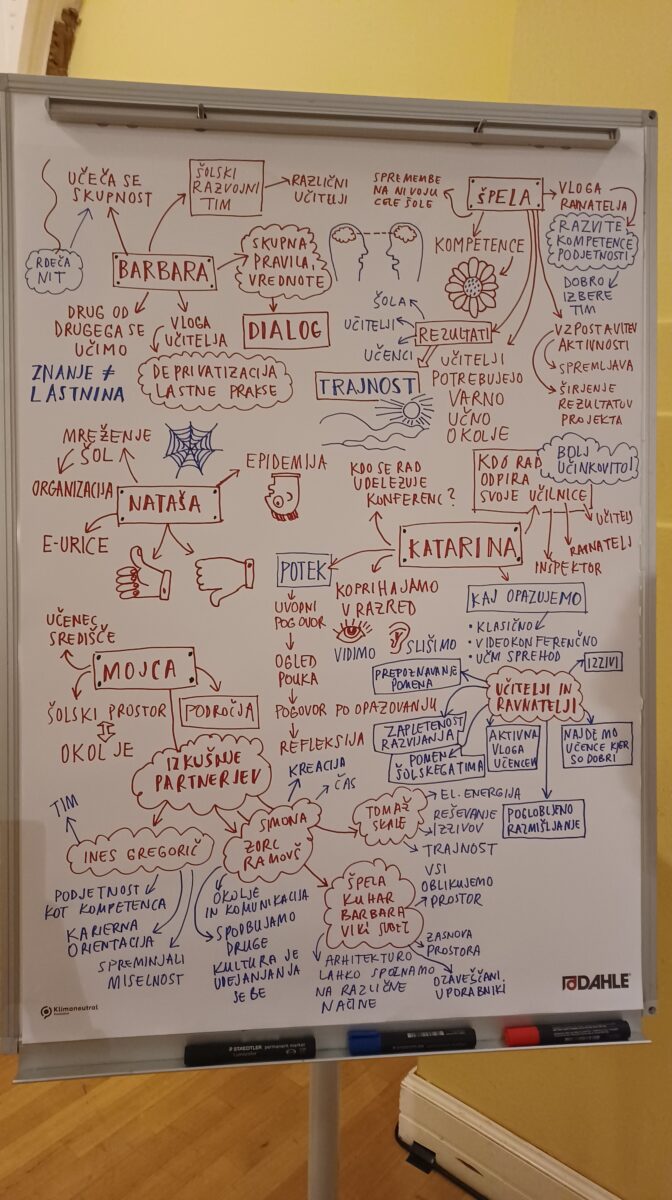 UČEČA SE
SKUPNOST
ŠOLSKI
RAZVOJNI
TIM
RAZLIČNI
UČITELJI
RDEČA
NIT
BARBARA
SKUPNA
PRAVILA,
VREDNOTE
DIALOG
DRUG OD
DRUGEGA SE
UČIMO
VLOGA
UČITELJA
DEPRIVATIZACIJA
LASTNE PRAKSE
ZNANJE ≠
LASTNINA
SPREMEMBE
NA NIVOJU
CELE ŠOLE
ŠPELA
VLOGA
RAVNATELJA
RAZVITE
KOMPETENCE
PODJETNOSTI
DOBRO
IZBERE
TIM
KOMPETENCE
ŠOLA
UČITELJI
UČENCI
REZULTATI
TRAJNOST
UČITELJI
POTREBUJEJO
VARNO
UČNO
OKOLJE
VZPOSTAVITEV
AKTIVNOSTI
SPREMLJAVA
ŠIRJENJE
REZULTATOV
PROJEKTA
MREŽENJE
ŠOL
ORGANIZACIJA
NATAŠA
EPIDEMIJA
E-URICE
KDO SE RAD
UDELEZUJE
KONFERENC?
KDO RAD
ODPIRA
SVOJE UČILNICE
BOLJ
UČINKOVITO!
KATARINA
UČITELJ
RAVNATELJ
INSPEKTOR
POTEK
UVODNI
POGOVOR
OGLED
POUKA
POGOVOR PO OPAZOVANJU
REFLEKSIJA
KO PRIHAJAMO
V RAZRED
VIDIMO
SLIŠIMO
KAJ OPAZUJEMO
• KLASIČNO
• VIDEOKONFERENČNO
• UČNI SPREHOD
PREPOZNAVANJE
POMENA
UČITELJI IN
RAVNATELJI
IZZIVI
ZAPLETENOST
RAZVIJANJA
POMEN
ŠOLSKEGA TIMA
AKTIVNA
VLOGA
UČENCEV
NAJDEMO
UČENCE KJER
SO DOBRI
POGLOBLJENO
RAZMIŠLJANJE
UČENEC
SREDIŠČE
MOJCA
ŠOLSKI PROSTOR
OKOLJE
PODROČJA
IZKUŠNJE
PARTNERJEV
TIM
INES GREGORIČ
PODJETNOST
KOT KOMPETENCA
KARIERNA
ORIENTACIJA
SPREMINJALI
MISELNOST
KREACIJA
ČAS
SIMONA
ZORC
RAMOVŠ
OKOLJE
IN KOMUNIKACIJA
SPODBUJAMO
DRUGE
KULTURA JE
UDEJANJANJA
SEBE
TOMAŽ
SKALE
EL. ENERGIJA
REŠEVANJE
IZZIVOV
TRAJNOST
ŠPELA
KUHAR
BARBARA
VIKI ŠUBIC
VSI
OBLIKUJEMO
PROSTOR
ZASNOVA
PROSTORA
OZAVEŠČANI,
UPORABNIKI
ARHITEKTURO
LAHKO SPOZNAMO
NA RAZLIČNE
NAČINE
Klimaneutral
DAHLE
STAEDTLER permanent marker